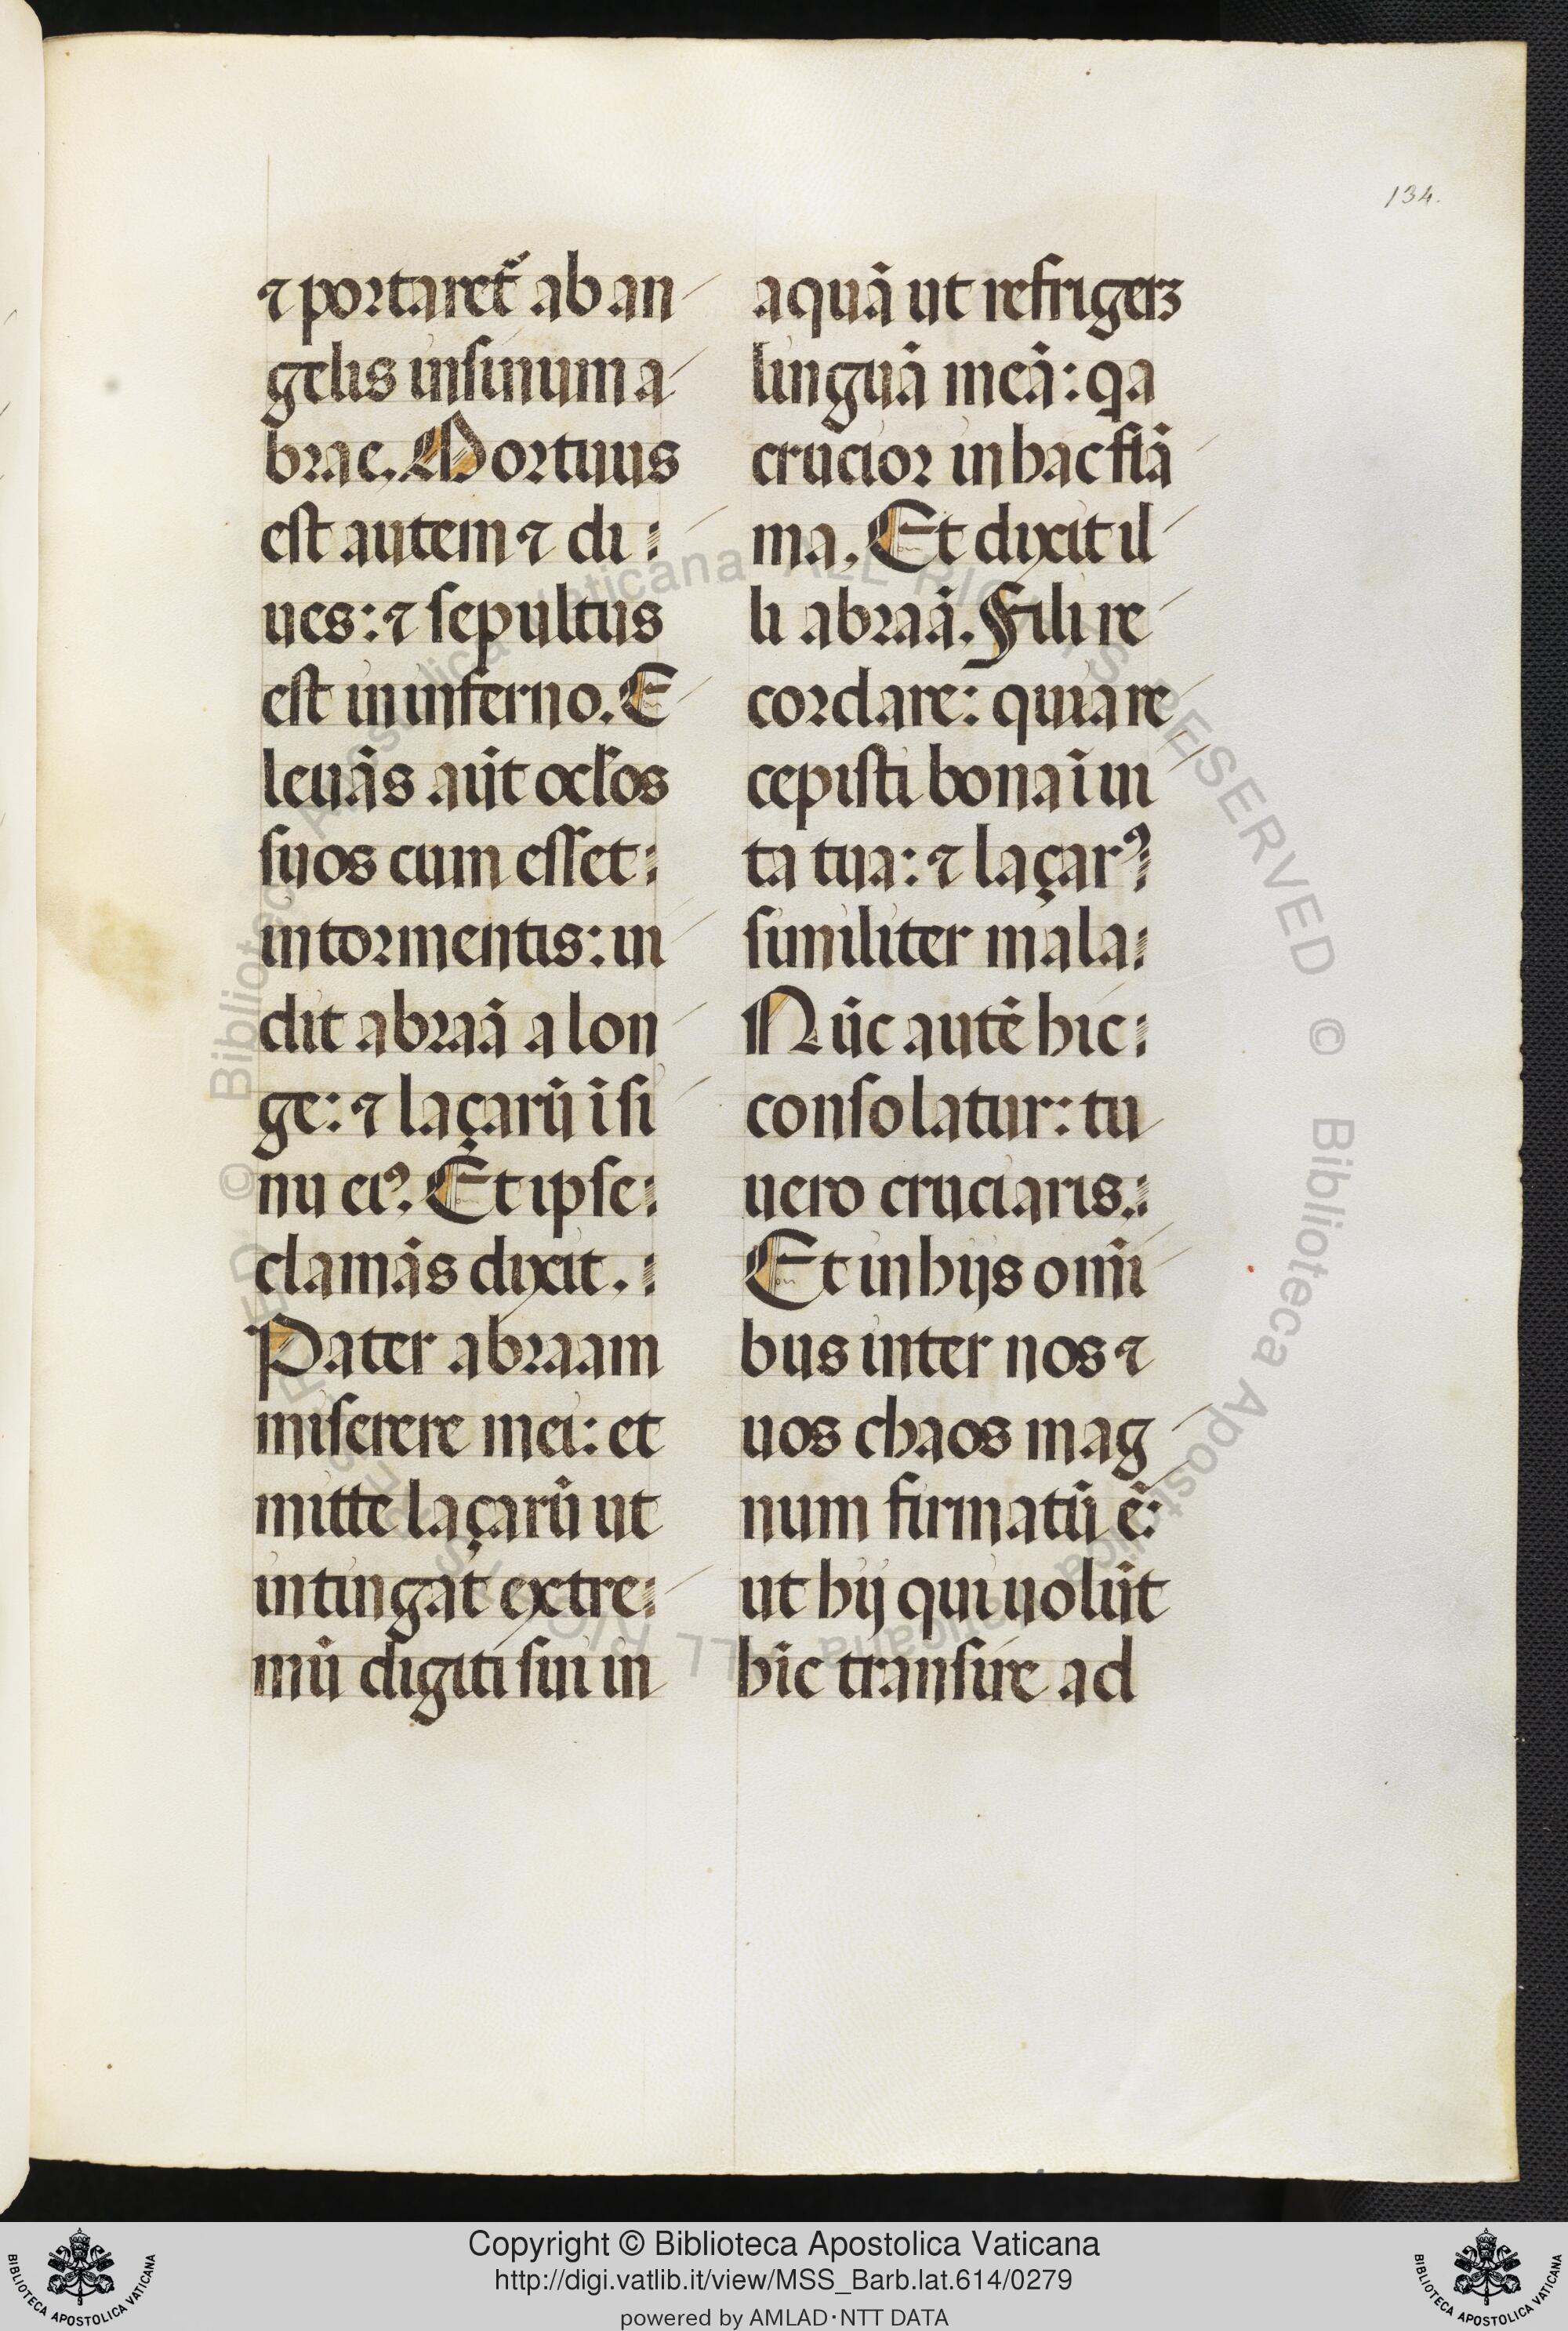 134.
⁊ portaret᷑ ab an
gelis in sinum a
brae. Mortuus
est autem ⁊ di
ues: ⁊ sepultus
est in inferno. E
leuās aūt oc̄los
suos cum esset
in tormentis: ui
dit abraā a lon
ge: ⁊ laçarū ī si
nu eiꝰ. Et ipse
clamās dixit.
Pater abraam
miserere mei: et
mitte laçarū ut
intingat extre
mū digiti sui in
aquā ut refrigerꝫ
linguā meā: qa
crucior in hac flā
ma. Et dixit il
li abraā. Fili re
cordare: quia re
cepisti bona ī ui
ta tua: ⁊ laçarꝰ
similiter mala
Nūc autē hic
consolatur: tu
uero cruciaris.
Et in hijs om̄i
bus inter nos ⁊
uos chaos mag
num firmatū ē:
ut hij qui uolūt
hic transire ad
Copyright © Biblioteca Apostolica Vaticana
http://digi.vatlib.it/view/MSS_Barb.lat.614/0279
powered by AMLAD·NTT DATA
BIBLIOTECA APOSTOLICA VATICANA
BIBLIOTECA APOSTOLICA VATICANA